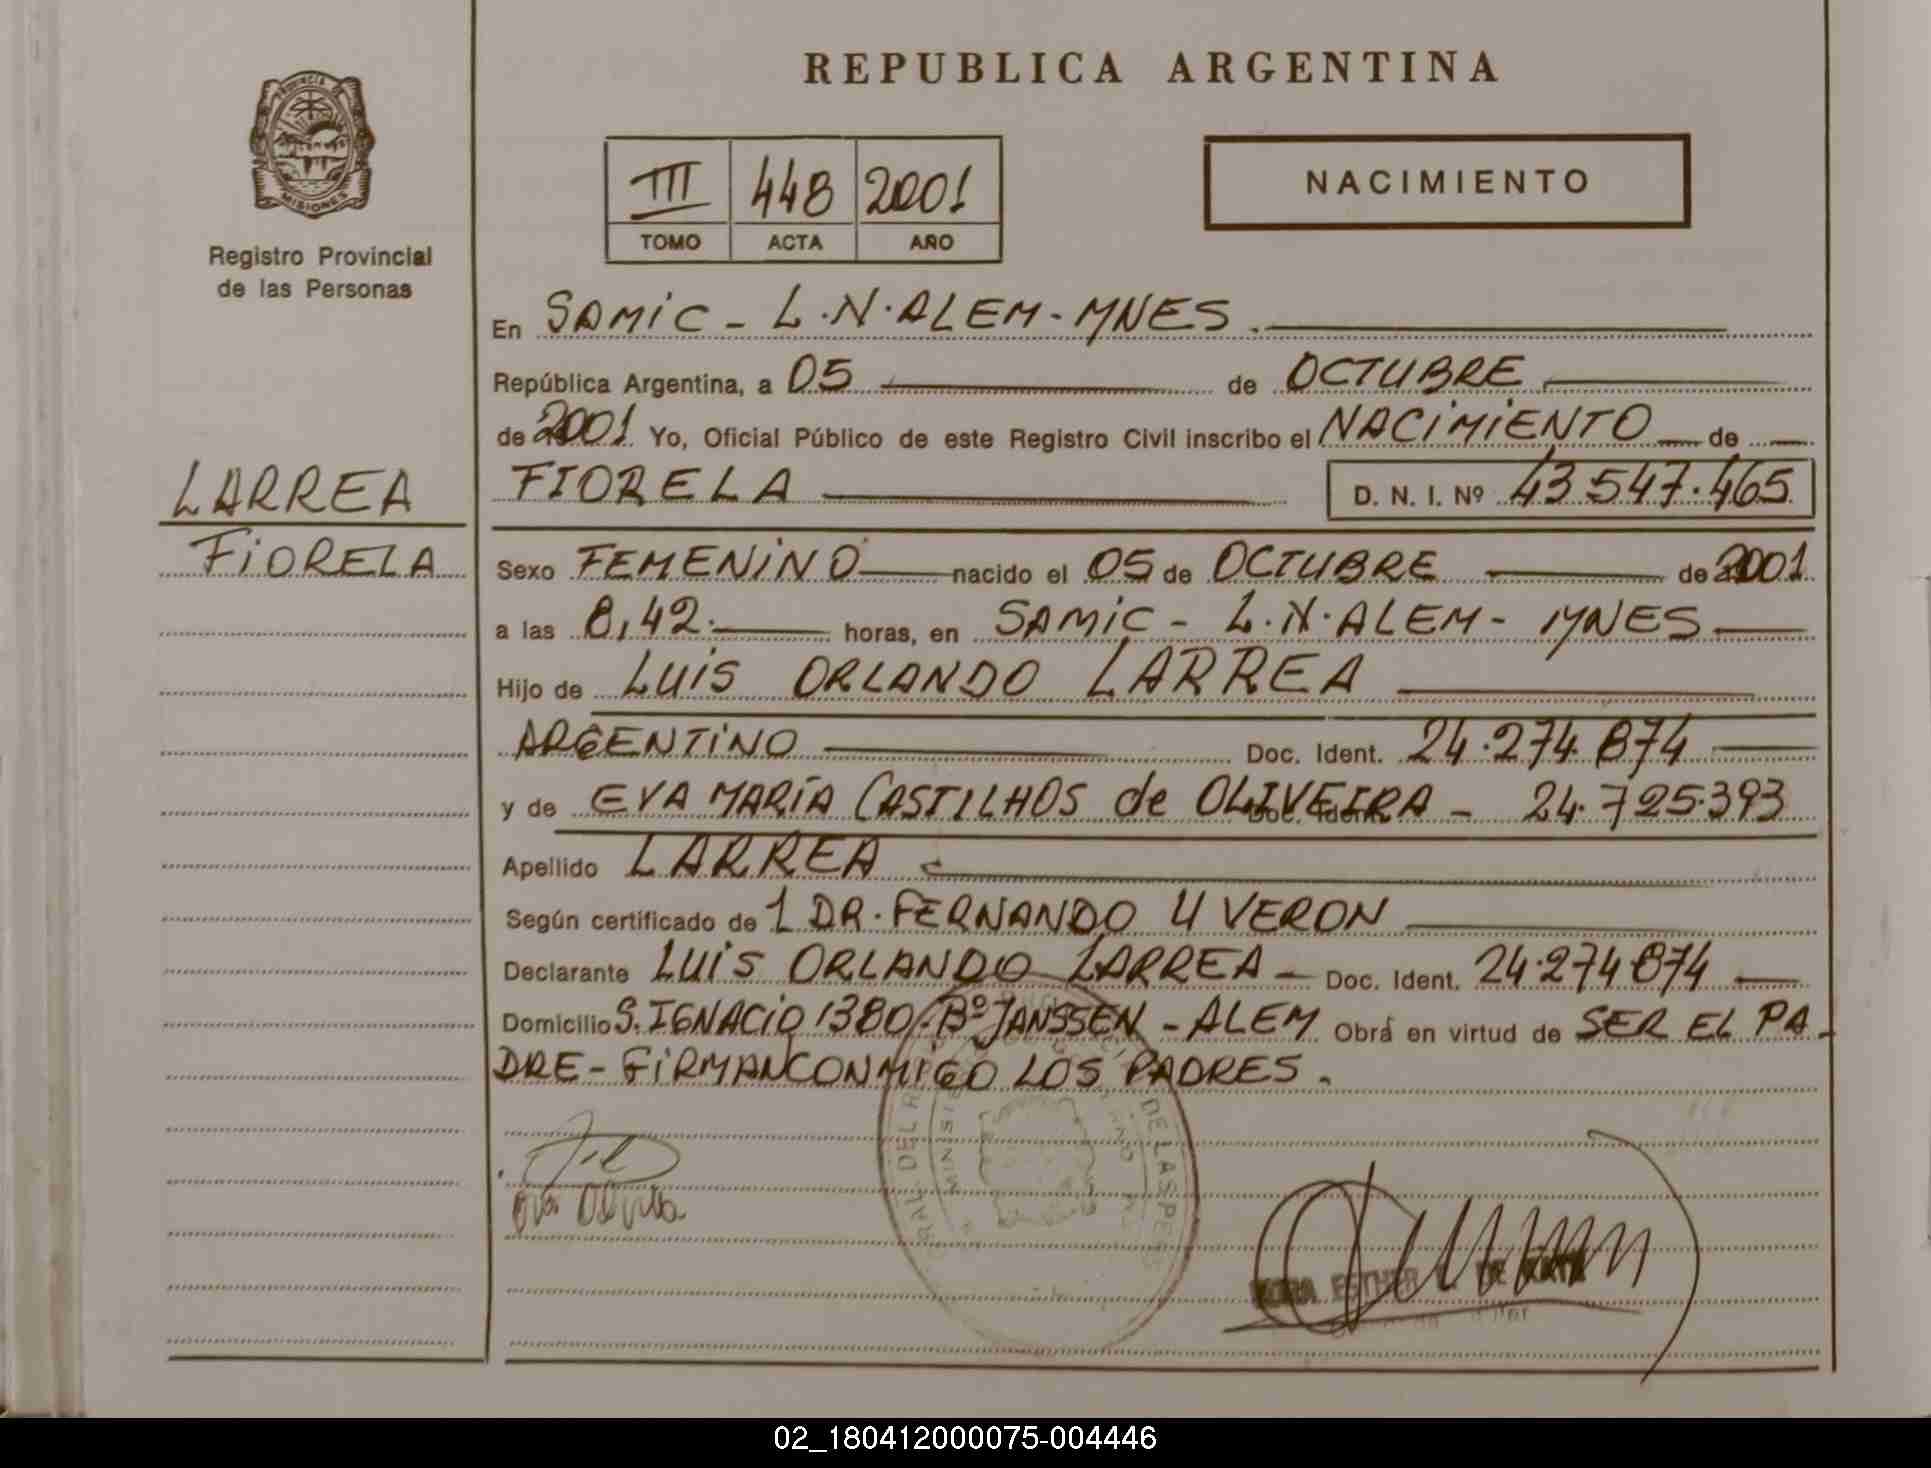 REPUBLICA ARGENTINA
PROVINCIA DE
MISIONES
Registro Provincial
de las Personas
III 448 2001
TOMO ACTA AÑO
NACIMIENTO
En SAMIC - L.N.ALEM - MNES.
República Argentina, a 05 de OCTUBRE
de 2001 Yo, Oficial Público de este Registro Civil inscribo el NACIMIENTO de
LARREA
FIORELA
FIORELA D. N. I. Nº 43.547.465
Sexo FEMENINO nacido el 05 de OCTUBRE de 2001
a las 8,42. horas, en SAMIC - L.N.ALEM - MNES
Hijo de LUIS ORLANDO LARREA
ARGENTINO Doc. Ident. 24.274.874
y de EVA MARÍA CASTILHOS de OLIVEIRA - Doc. Ident. 24.725.393
Apellido LARREA
Según certificado de 1 DR. FERNANDO U VERON
Declarante LUIS ORLANDO LARREA - Doc. Ident. 24.274.874
Domicilio S. IGNACIO 1380 - Bº JANSSEN - ALEM Obra en virtud de SER EL PA-
DRE - FIRMAN CONMIGO LOS PADRES.
MINISTE
DE LAS PE
ESTHER DE
02_180412000075-004446